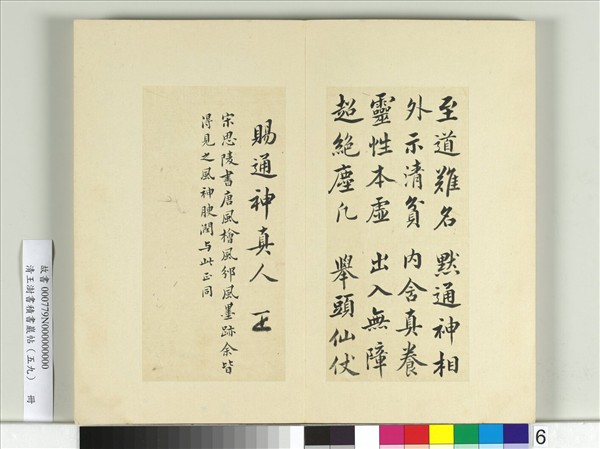 至道難名 默通神相
外示清貧 内含真養
靈性本虛 出入無障
超絶塵凡 舉頭仙仗
賜通神真人 王
宋思陵書唐風檜風邠風墨跡余皆
得見之風神腴潤与此正同
故書000779N000000000
清王澍書積書巖帖(五九) 冊
6